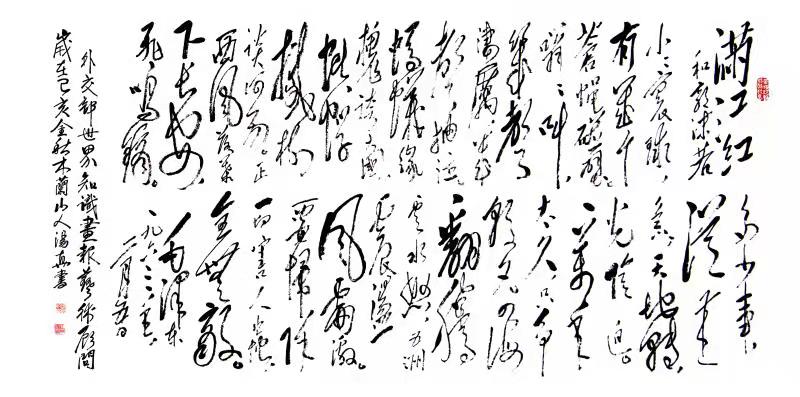 滿江紅
和郭沫若
小小寰球,
有幾個
蒼蠅碰壁。
嗡嗡叫,
撼樹
談何易。正
西風落葉
下長安,
飛鳴鏑。
多少事,
從來
急。天地轉,
光陰迫。
一萬年
太久,只爭
朝夕。四海
翻騰
雲水怒,五洲
震盪
風雷激。
要掃除
一切害人蟲,
全無敵。
毛澤東
一九六三年
一月九日
外交部世界知識畫報藝術顧問
歲在己亥金秋木蘭山人湯真書